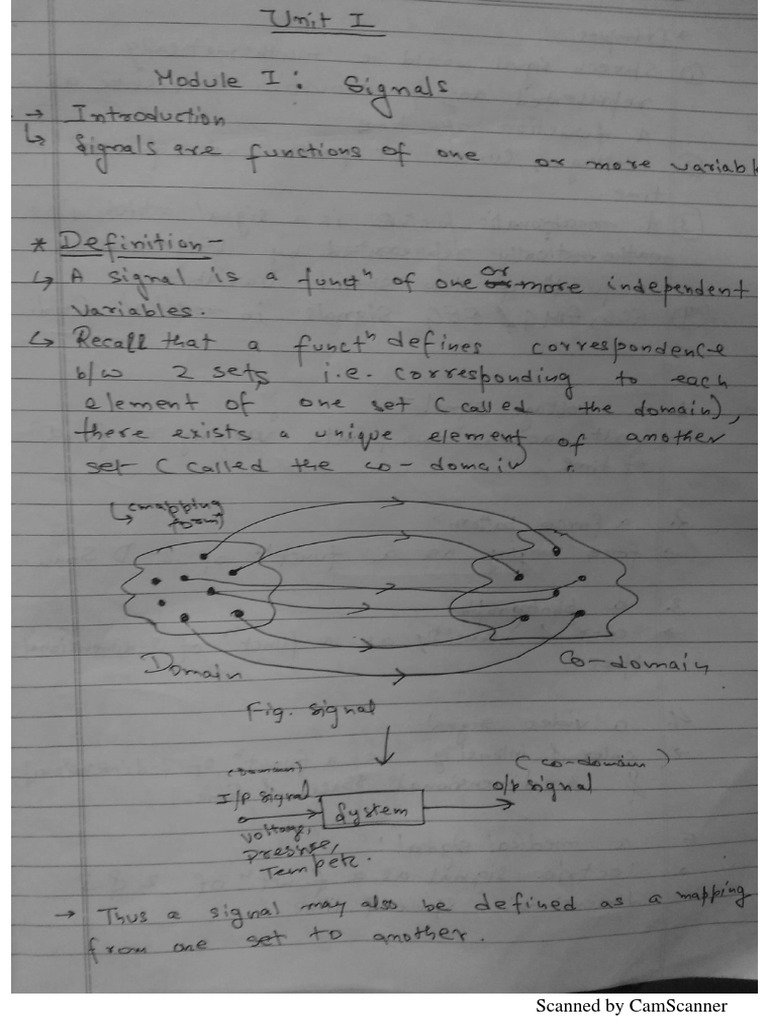 Unit I
Module I: Signals
→ Introduction
↳ Signals are functions of one or more variabl
* Definition -
↳ A signal is a functⁿ of one or more independent
variables.
↳ Recall that a functⁿ defines correspondence
b/w 2 sets, i.e. corresponding to each
element of one set (called the domain),
there exists a unique element of another
set (called the co-domain
↳ (mapping
form)
Domain
Co-domain
Fig. signal
(Domain)
(co-domain)
I/P signal
System
o/p signal
voltage,
Presure,
Temper.
→ Thus a signal may also be defined as a mapping
from one set to another.
Scanned by CamScanner